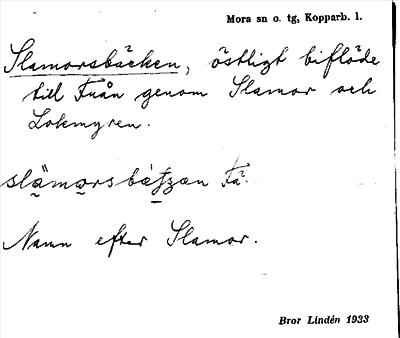 Mora sn o. tg, Kopparb. l.
Slamorsbäcken, östligt biflöde
till Fuån genom Slamor och
Lokmyren.
Namn efter Slamor.
Bror Lindén 1933